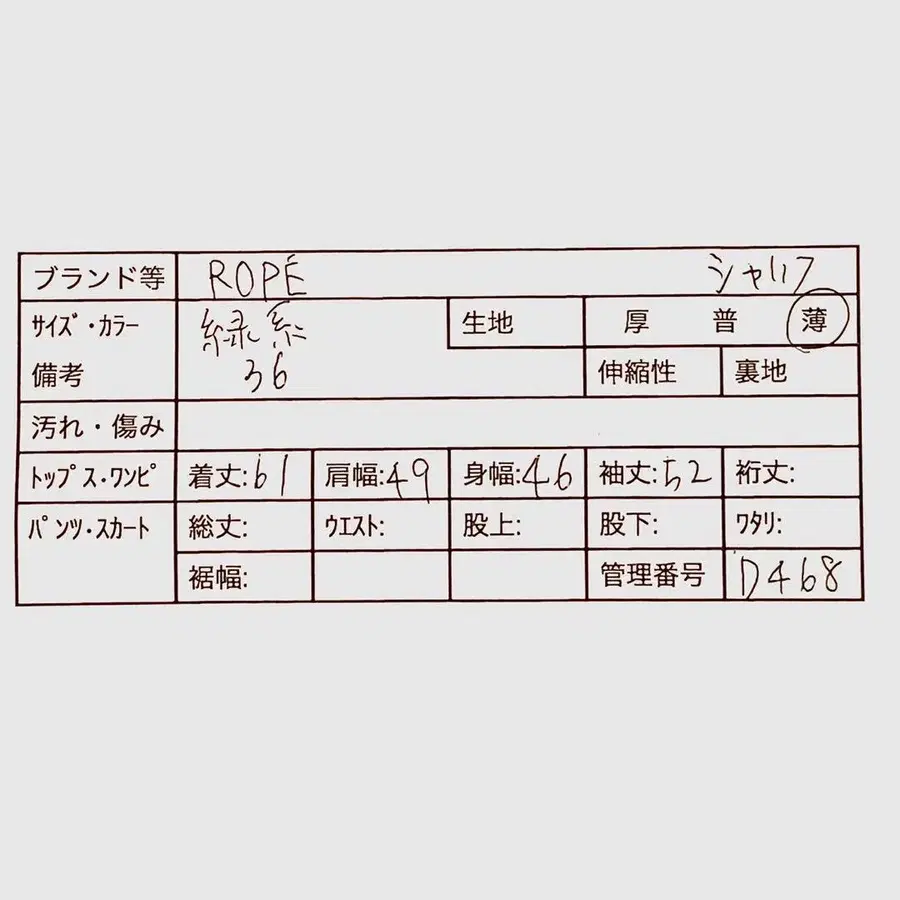 ブランド等 ROPÉ シャツ
サイズ・カラー 緑系 生地 厚 普 薄
備考 36 伸縮性 裏地
汚れ・傷み
トップス・ワンピ 着丈:61 肩幅:49 身幅:46 袖丈:52 裄丈:
パンツ・スカート 総丈: ウエスト: 股上: 股下: ワタリ:
裾幅: 管理番号 D468